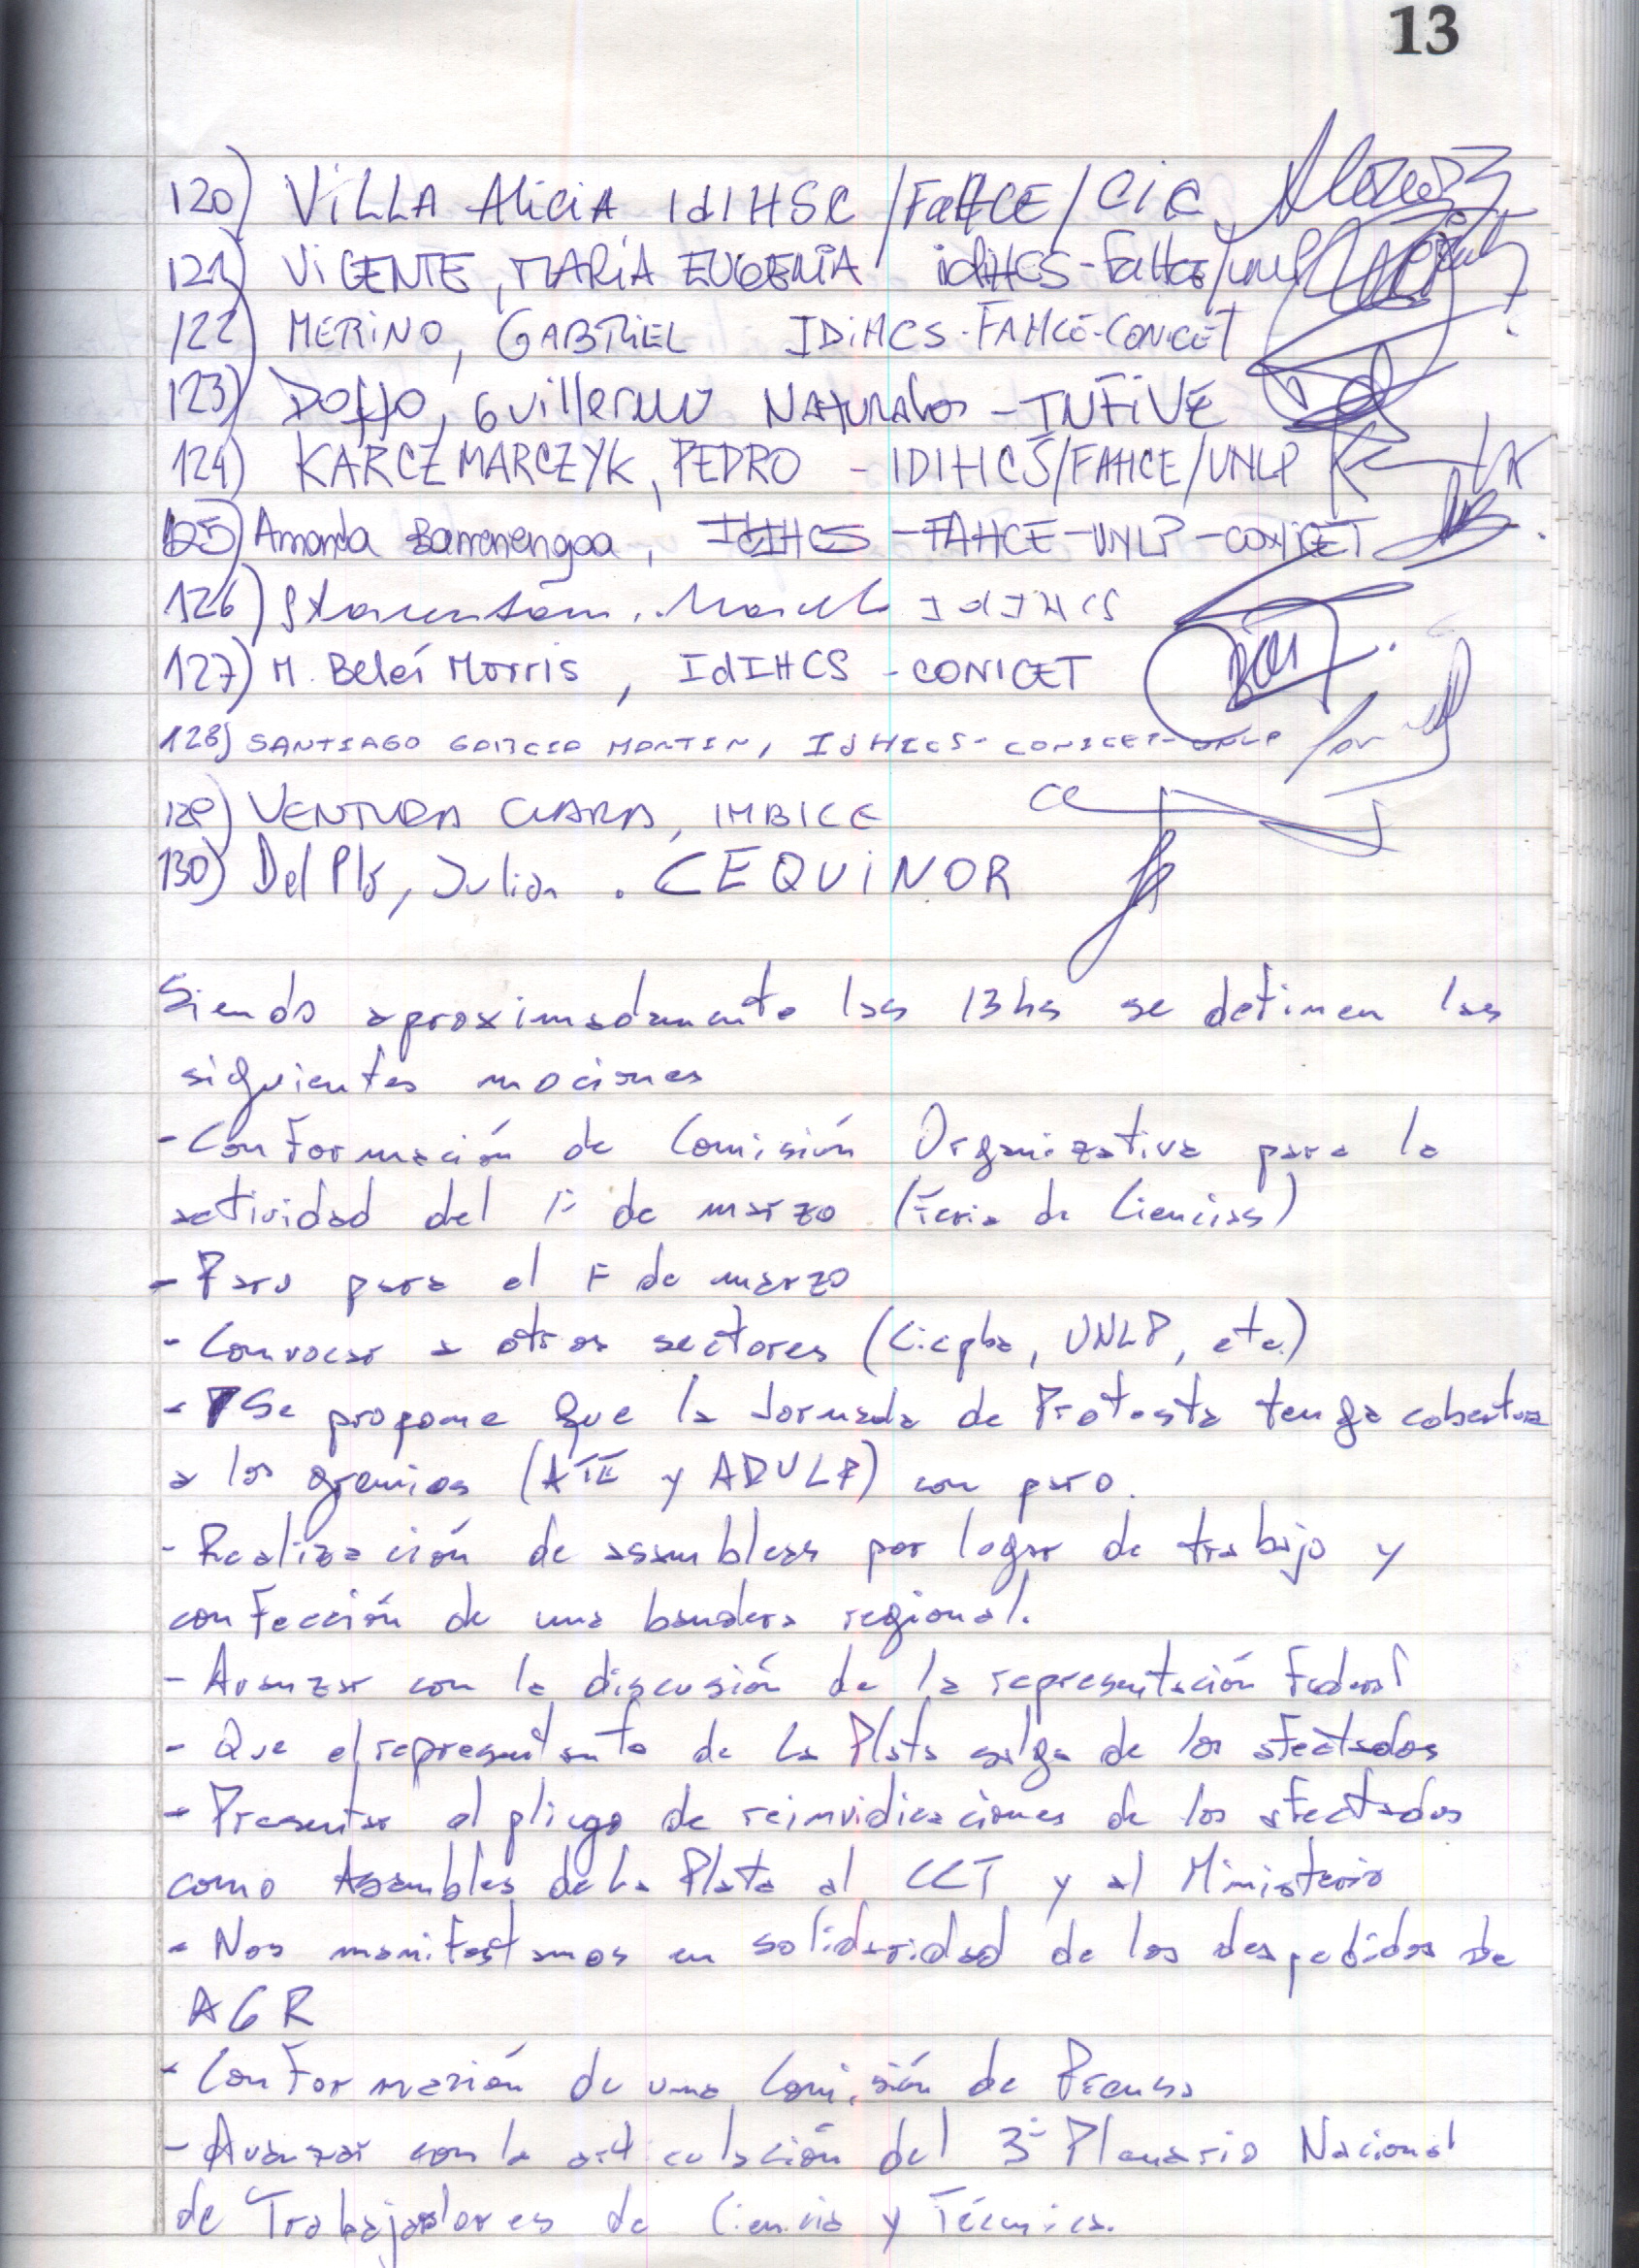 13
120) ViLLA AliciA IdIHSC /FaHCE/ CiC
121) ViCENTE, MARÍA EUGENIA idIHCS-FaHCE/UNLP
122) MERiNO, GABRIEL IDiHCS-FAHCE-CONICET
123) Doffo, Guillermo Naturales - INFiVE
124) KARCZMARCZYK, PEDRO - IDIHCS/FAHCE/UNLP
125) Amanda Barrenengoa, IdIHCS-FAHCE-UNLP-CONICET
126) Starcenbaum, Marcelo IdIHCS
127) M. Belén Morris, IdIHCS - CONICET
128) SANTIAGO GARCIA MARTIN, IdHICS-CONICET-UNLP
129) VENTURA CLARA, IMBICE
130) Del Pla, Julian. CEQUiNOR
Siendo aproximadamente las 13hs se definen las
siguientes mociones
- Conformación de Comisión Organizativa para la
actividad del 1° de marzo (Feria de Ciencias)
- Paro para el 1° de marzo
- Convocar a otros sectores (Cicpba, UNLP, etc.)
- Se propone que la Jornada de Protesta tenga cobertura
a los gremios (ATE y ADULP) con paro.
- Realización de asambleas por lugar de trabajo y
confección de una bandera regional.
- Avanzar con la discusión de la representación Federal
- Que el representante de La Plata salga de los afectados
- Presentar el pliego de reinvidicaciones de los afectados
como Asamblea de La Plata al CCT y al Ministerio
- Nos manifestamos en solidaridad de los despedidos de
AGR
- Conformación de una Comisión de Prensa
- Avanzar con la articulación del 3° Plenario Nacional
de Trabajadores de Ciencia y Técnica.